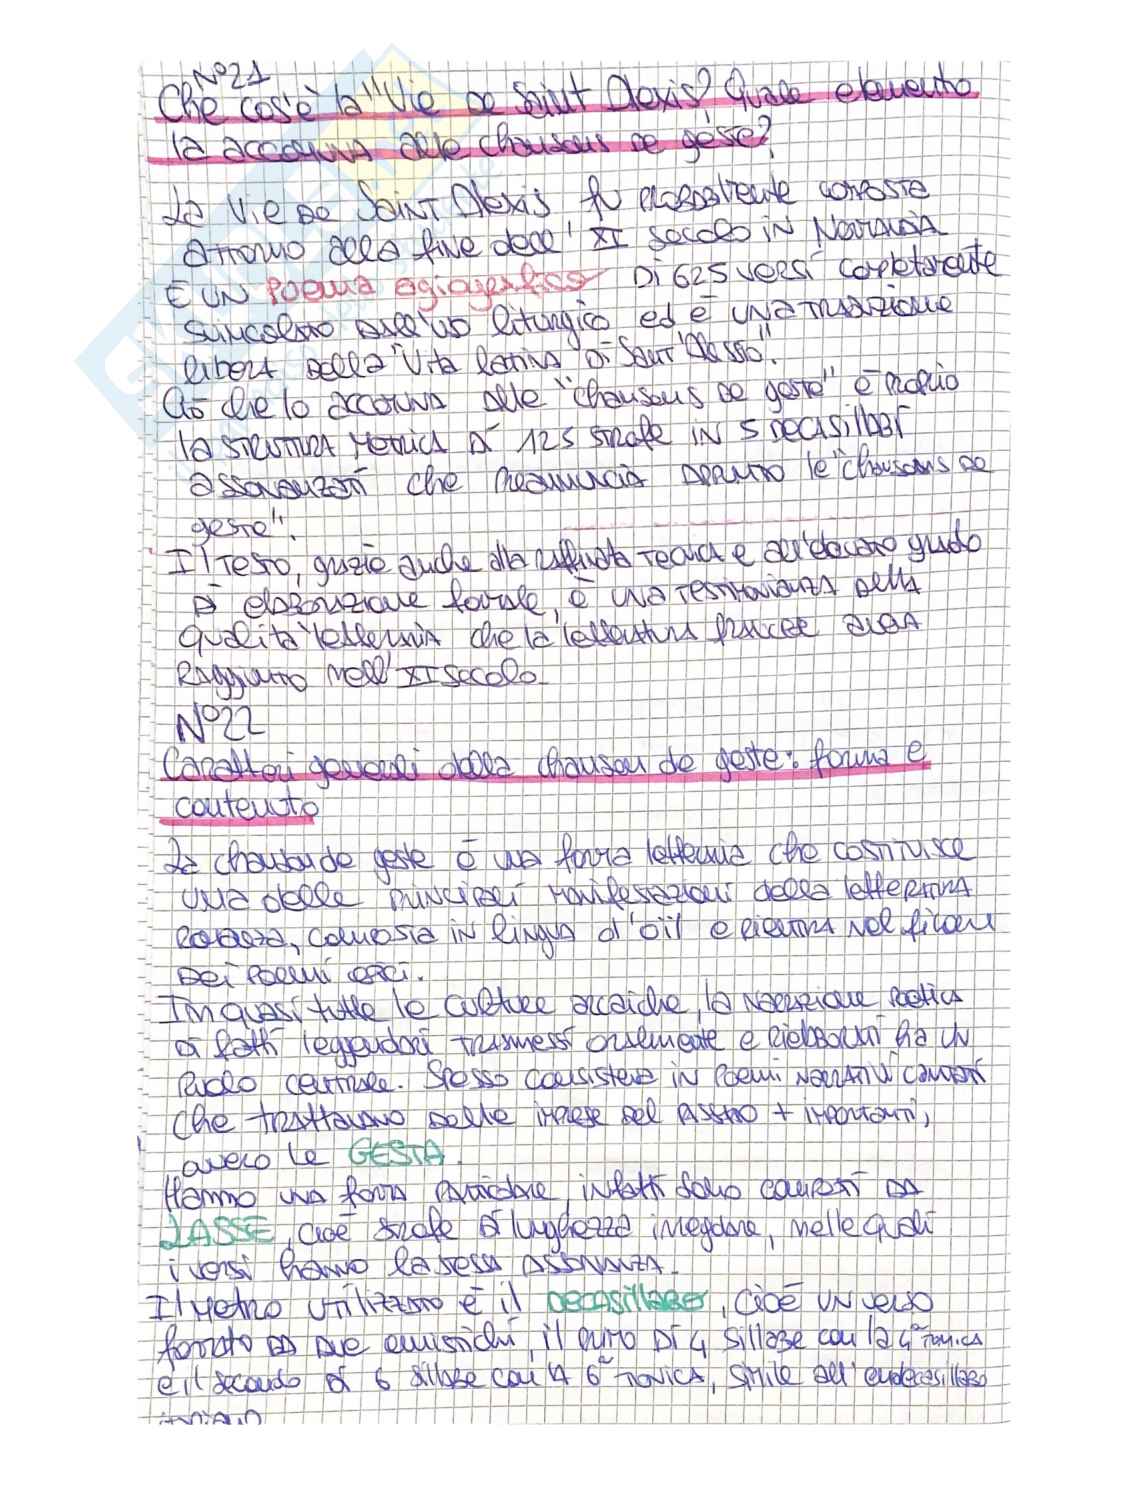 N°21
Che cos'è la "Vie de Saint Alexis? Quale elemento
la accomuna alle chansons de geste?
La Vie de Saint Alexis fu probabilmente composta
attorno alla fine dell'XI secolo in Normandia
È un poema agiografico di 625 versi completamente
svincolato dall'uso liturgico ed è una traduzione
libera della "Vita latina di Sant'Alessio".
Ciò che lo accomuna alle "chansons de geste" è proprio
la struttura metrica di 125 strofe in 5 decasillabi
assonanzati che preannuncia appunto le "chansons de
geste".
Il testo, grazie anche alla raffinata tecnica e all'elevato grado
di elaborazione formale, è una testimonianza della
qualità letteraria che la letteratura francese aveva
raggiunto nell'XI secolo.
N°22
Caratteri generali della chanson de geste: forma e
contenuto
La chanson de geste è una forma letteraria che costituisce
una delle principali manifestazioni della letteratura
romanza, composta in lingua d'oïl e rientra nel filone
dei poemi epici.
In quasi tutte le culture arcaiche, la narrazione poetica
di fatti leggendari trasmessi oralmente e rielaborati ha un
ruolo centrale. Spesso consisteva in poemi narrativi cantati
che trattavano delle imprese del passato + importanti,
ovvero le GESTA.
Hanno una forma particolare, infatti sono composti da
LASSE, cioè strofe di lunghezza irregolare, nelle quali
i versi hanno la stessa assonanza.
Il metro utilizzato è il decasillabo, cioè un verso
formato da due emistichi, il primo di 4 sillabe con la 4ª tonica
e il secondo di 6 sillabe con la 6ª tonica, simile all'endecasillabo
italiano